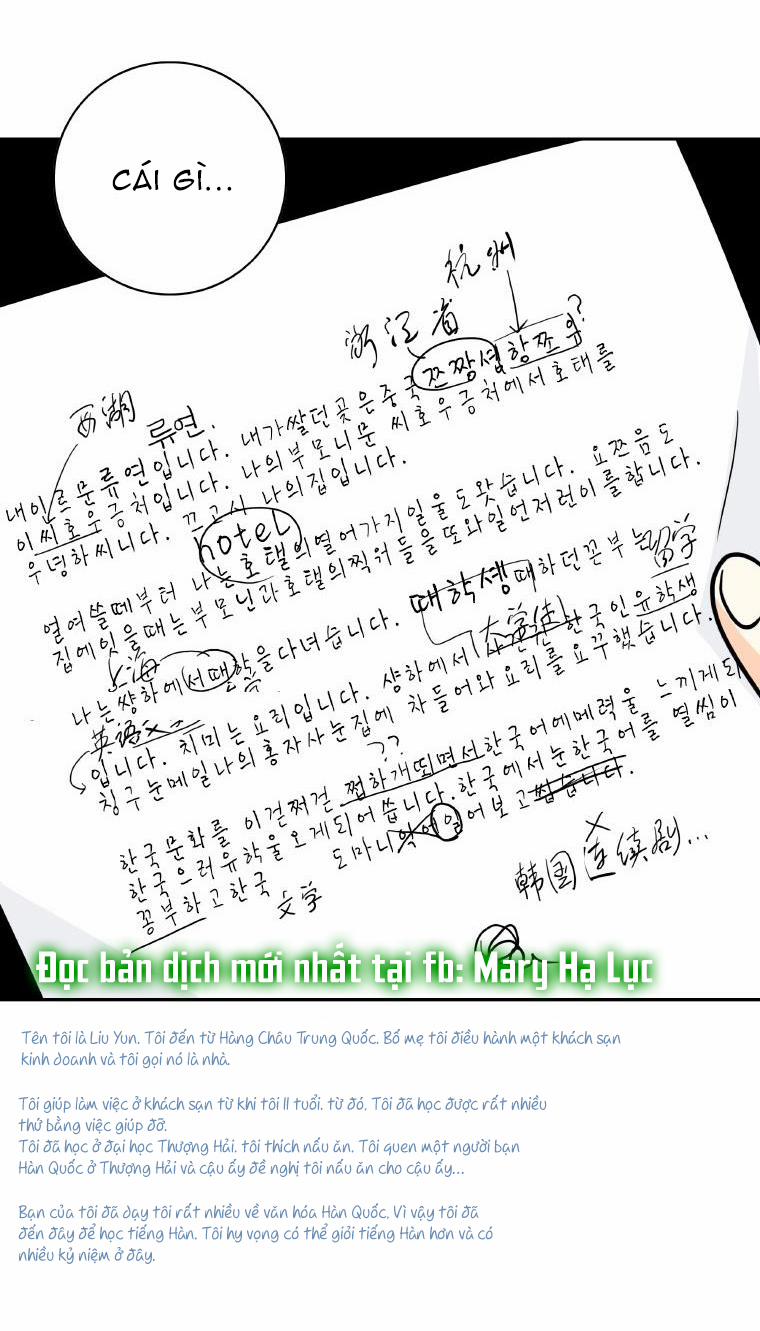 CÁI GÌ...
杭州
浙江省
西湖
류연.
내이르문류연입니다. 내가쌀던곳은중국쯔짱셩항쪼우?
이씨호우금처입니다. 나의부모니문 씨호우금처에서호태를
우녕하씨니다. 끄고시 나의집입니다.
hotel
열여쓸떼부터 나는호탤의열어가지일울도왓습니다. 요쯔음도
집에잇을때는부모닌과호탤의찍워들을또와일언저런이를합니다.
上海
留学
나는썅하에서때학을다녀습니다. 때학솅때하던꼰부는
大学生
한국인유학생
英语
입니다. 치미는요리입니다. 샹하에서
칭구눈메일나의홍자사눈집에 차들어와요리를요꾸했습니다.
??
한국문화를 이걷쩌걷 쩝하개뙤면서한국어에메력울 느끼게되
한국으러유학울오게되어씁니다.한국에서눈한국어를 열씸이
꽁부하고한국 도마니 일어보고씹습니다.
文学
韩国连续剧...
Đọc bản dịch mới nhất tại fb: Mary Hạ Lục
Tên tôi là Liu Yun. Tôi đến từ Hàng Châu Trung Quốc. Bố mẹ tôi điều hành một khách sạn
kinh doanh và tôi gọi nó là nhà.
Tôi giúp làm việc ở khách sạn từ khi tôi 11 tuổi. từ đó, Tôi đã học được rất nhiều
thứ bằng việc giúp đỡ.
Tôi đã học ở đại học Thượng Hải. tôi thích nấu ăn. Tôi quen một người bạn
Hàn Quốc ở Thượng Hải và cậu ấy đề nghị tôi nấu ăn cho cậu ấy...
Bạn của tôi đã dạy tôi rất nhiều về văn hóa Hàn Quốc. Vì vậy tôi đã
đến đây để học tiếng Hàn. Tôi hy vọng có thể giỏi tiếng Hàn hơn và có
nhiều kỷ niệm ở đây.